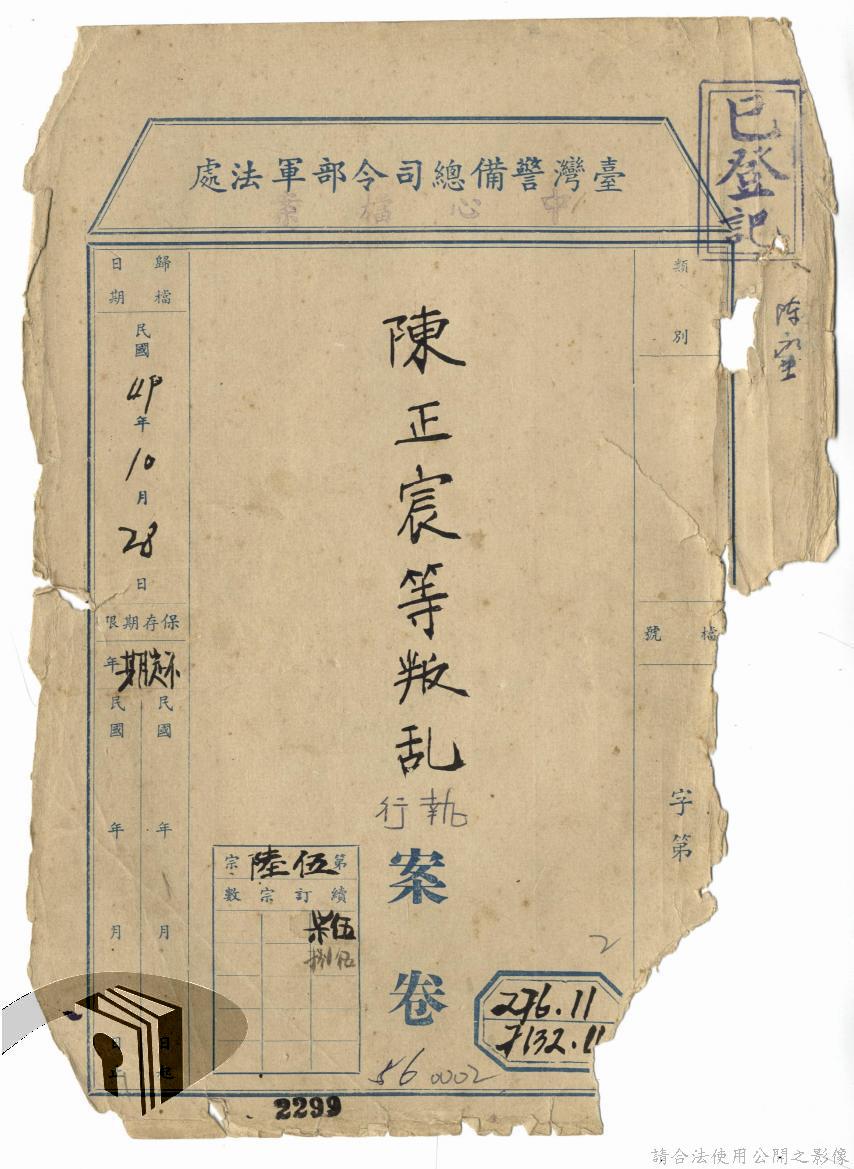 已登記
臺灣警備總司令部軍法處
中心檔案
類別
檔號
字第
陳正宸等叛乱
執行
案卷
歸檔日期
民國49年10月28日
保存期限
年
民國 年 月 日起
民國 年 月 日止
第伍陸宗
續訂宗數
伍柒
伍捌
276.11
7132.11
2
56 0002
2299
請合法使用公開之影像